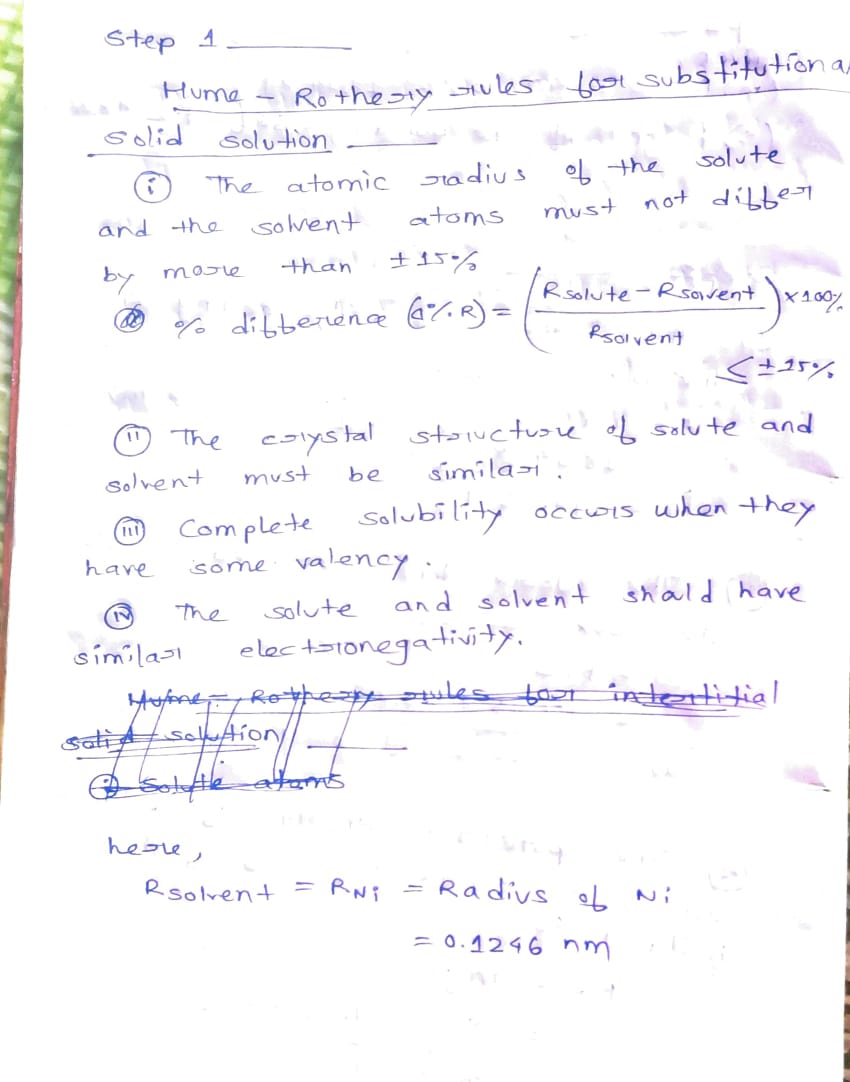 Step 1
Hume - Rothery rules for substitutional
solid solution
(i) The atomic radius of the solute
and the solvent atoms must not differ
by more than ± 15%
% difference (Δ%.R) = (Rsolute - Rsolvent / Rsolvent) × 100%
≤ ± 15%
(ii) The crystal structure of solute and
solvent must be similar.
(iii) Complete solubility occurs when they
have some valency.
(iv) The solute and solvent shald have
similar electronegativity.
Hume - Rothery rules for intertitial
solid solution
(i) Solute atoms
here,
Rsolvent = RNi = Radius of Ni
= 0.1246 nm